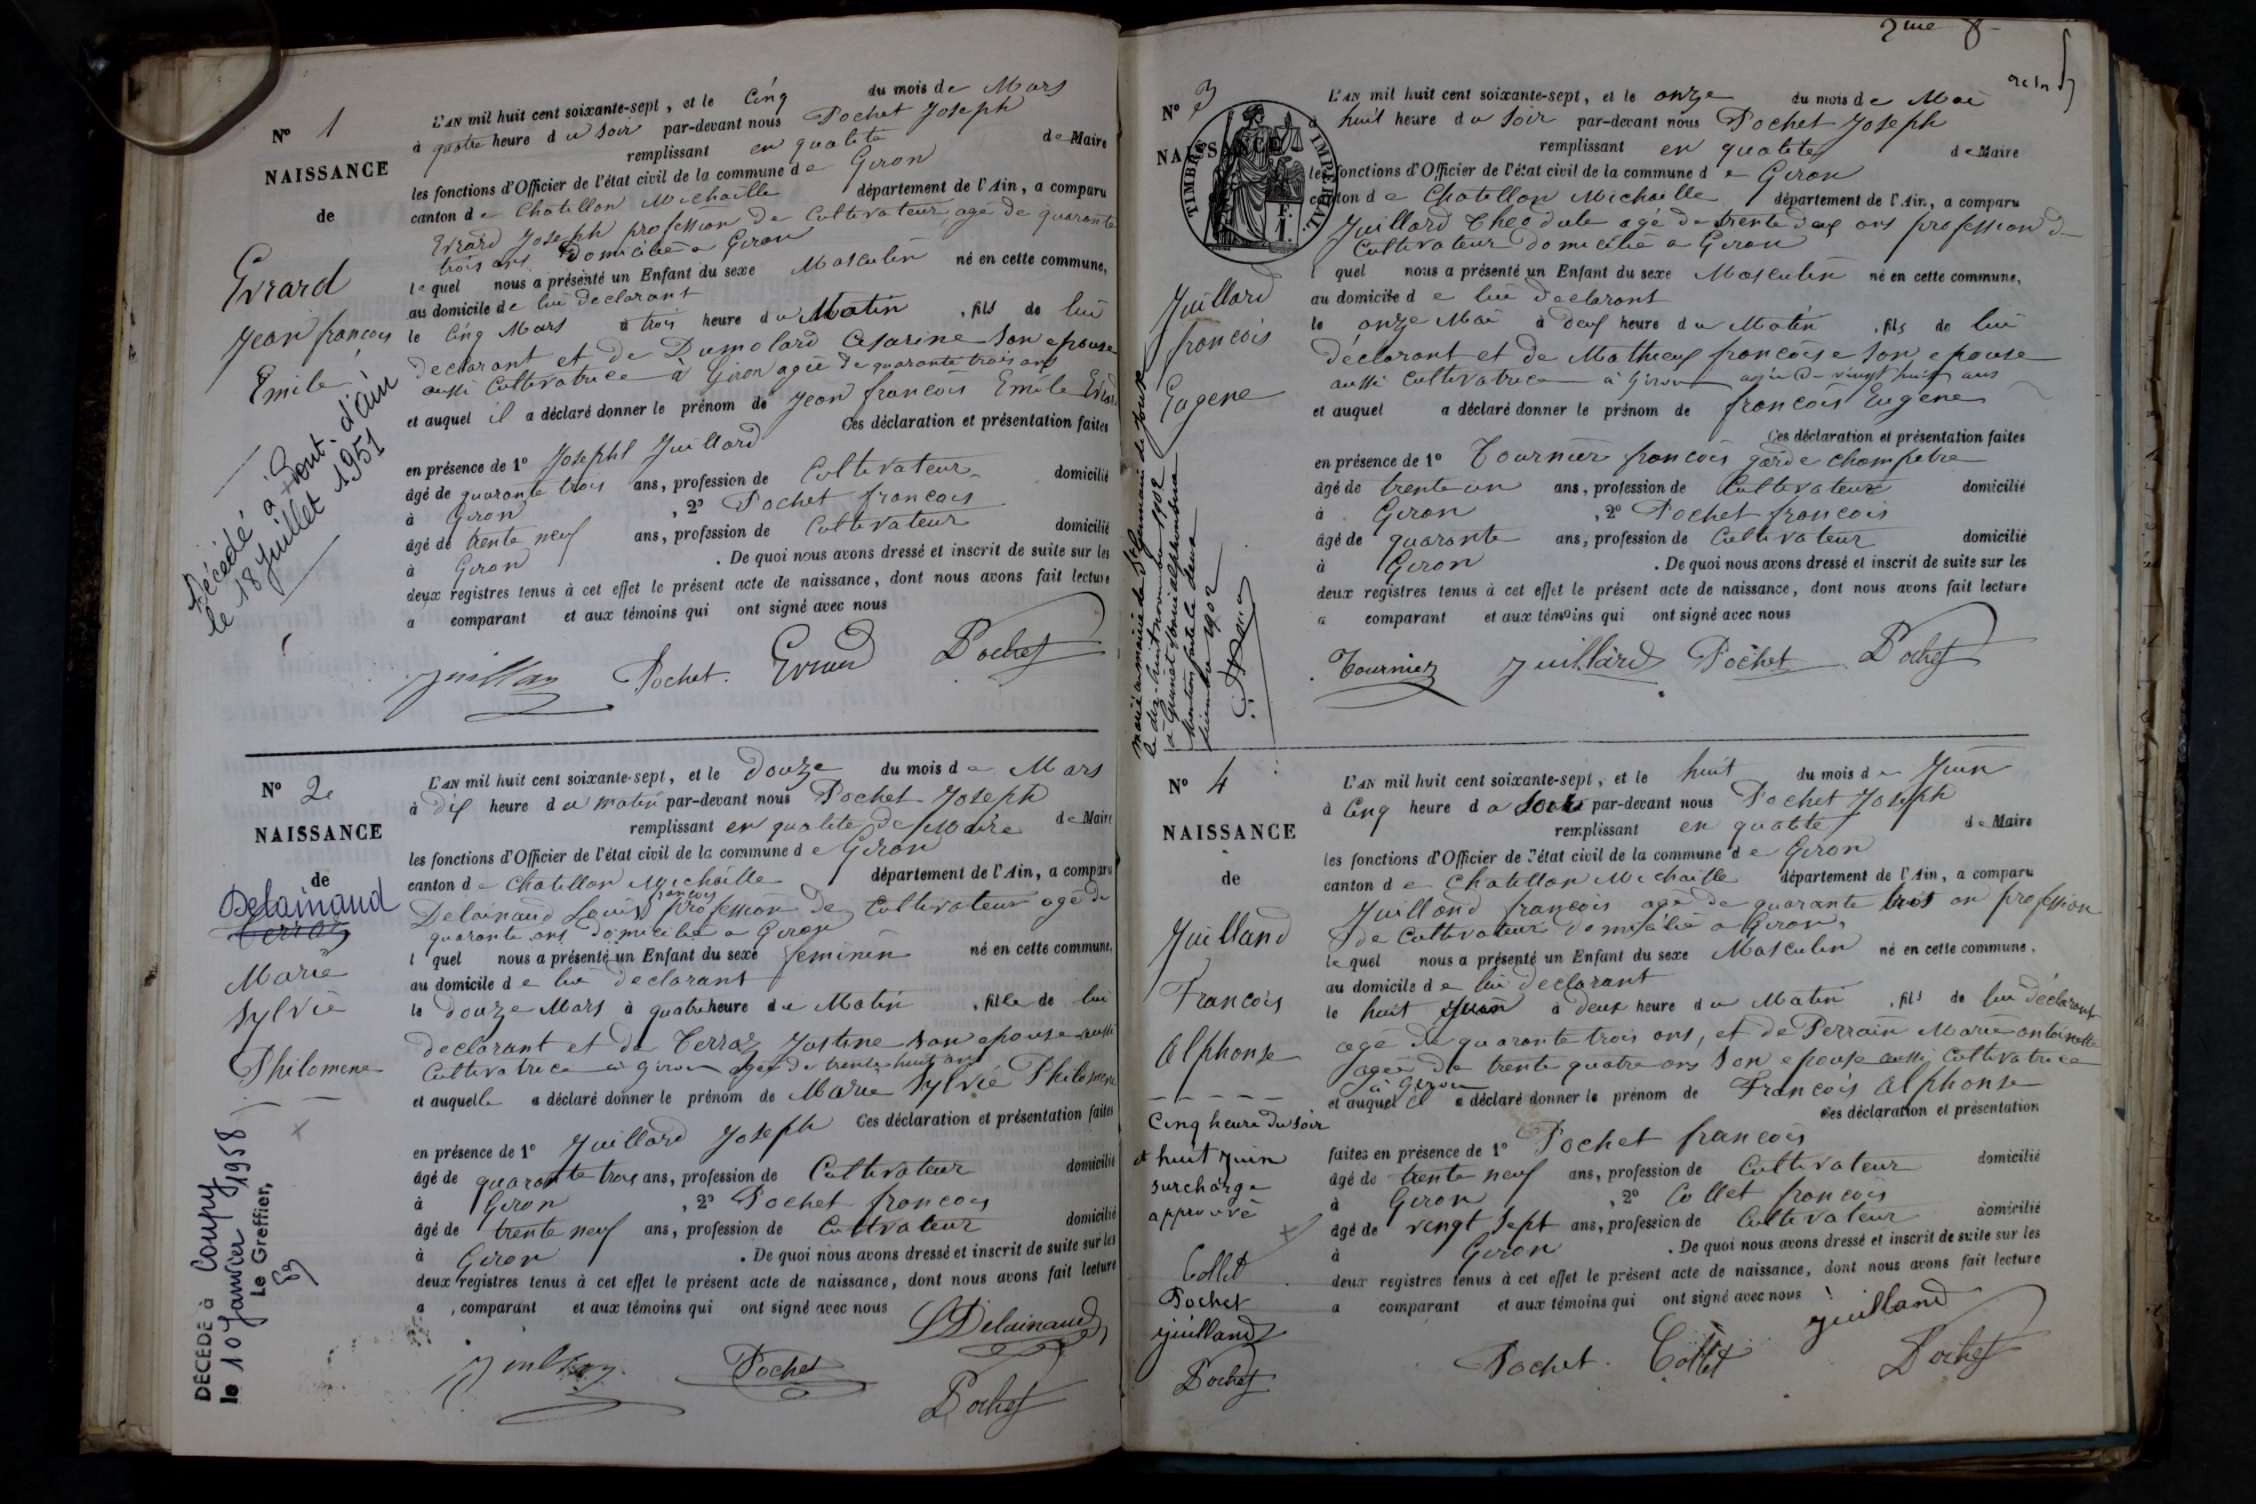 N° 1
NAISSANCE
de
Evrard
Jean françois
Emile
Décédé à Pont-d'ain
le 18 Juillet 1951
L'AN mil huit cent soixante-sept, et le Cinq du mois de Mars
à quatre heure du Soir par-devant nous Pochet Joseph
remplissant en qualité de Maire
les fonctions d'Officier de l'état civil de la commune de Giron
canton de Chatillon Michaille département de l'Ain, a comparu
Evrard Joseph profession de Cultivateur agé de quarante
trois ans Domicilié a Giron
le quel nous a présenté un Enfant du sexe Masculin né en cette commune,
au domicile de lui declarant
le Cinq Mars à trois heure du Matin, fils de lui
declarant et de Dumolard Césarine Son epouse
aussi Cultivatrice à Giron agée de quarante trois ans
et auquel il a déclaré donner le prénom de Jean françois Emile Evrard
Ces déclaration et présentation faites
en présence de 1° Joseph Juillard
âgé de quarante trois ans, profession de Cultivateur domicilié
à Giron, 2° Pochet françois
âgé de trente neuf ans, profession de Cultivateur domicilié
à Giron. De quoi nous avons dressé et inscrit de suite sur les
deux registres tenus à cet effet le présent acte de naissance, dont nous avons fait lecture
a comparant et aux témoins qui ont signé avec nous
Juillard Pochet Evrard Pochet
N° 2
NAISSANCE
de
Delainaud
Terraz
Marie
Sylvie
Philomene
DECEDE à Coupy
le 10 Janvier 1958
Le Greffier,
L'AN mil huit cent soixante-sept, et le Douze du mois de Mars
à Dix heure du matin par-devant nous Pochet Joseph
remplissant en qualité de Maire de Maire
les fonctions d'Officier de l'état civil de la commune de Giron
canton de Chatillon Michaille département de l'Ain, a comparu
françois
Delainaud Louis profession de Cultivateur agé de
quarante ans domicilié a Giron
l quel nous a présenté un Enfant du sexe feminin né en cette commune,
au domicile de lui declarant
le douze Mars à quatre heure du Matin, fille de lui
declarant et de Terraz Justine son epouse aussi
Cultivatrice à Giron agée de trente huit ans
et auquelle a déclaré donner le prénom de Marie Sylvie Philomene
Ces déclaration et présentation faites
en présence de 1° Juillard Joseph
âgé de quarante trois ans, profession de Cultivateur domicilié
à Giron, 2° Pochet françois
âgé de trente neuf ans, profession de Cultivateur domicilié
à Giron. De quoi nous avons dressé et inscrit de suite sur les
deux registres tenus à cet effet le présent acte de naissance, dont nous avons fait lecture
a comparant et aux témoins qui ont signé avec nous
L Delainaud
Pochet
Pochet
N° 3
NAISSANCE
TIMBRE IMPERIAL
Juillard
françois
Eugene
marié à la mairie de St Germain de Joux
le dix-huit novembre 1902
Mention faite le deux
décembre 1902
L'AN mil huit cent soixante-sept, et le onze du mois de Mai
à huit heure du Soir par-devant nous Pochet Joseph
remplissant en qualité de Maire
les fonctions d'Officier de l'état civil de la commune de Giron
canton de Chatillon Michaille département de l'Ain, a comparu
Juillard Theodule agé de trente deux ans profession de
Cultivateur Domicilié a Giron
l quel nous a présenté un Enfant du sexe Masculin né en cette commune,
au domicile de lui declarant
le onze Mai à deux heure du Matin, fils de lui
déclarant et de Mathieux françoise Son epouse
aussi Cultivatrice à Giron agée de vingt huit ans
et auquel a déclaré donner le prénom de françois Eugène
Ces déclaration et présentation faites
en présence de 1° Tournier francois garde champetre
âgé de trente un ans, profession de Cultivateur domicilié
à Giron, 2° Pochet françois
âgé de quarante ans, profession de Cultivateur domicilié
à Giron. De quoi nous avons dressé et inscrit de suite sur les
deux registres tenus à cet effet le présent acte de naissance, dont nous avons fait lecture
a comparant et aux témoins qui ont signé avec nous
Tournier Juillard Pochet Pochet
N° 4
NAISSANCE
de
Juilland
François
Alphonse
Cinq heure du Soir
et huit Juin
surcharge
approuvé
Collet
Pochet
Juilland
Pochet
L'AN mil huit cent soixante-sept, et le huit du mois de Juin
à Cinq heure du Soir par-devant nous Pochet Joseph
remplissant en qualité de Maire
les fonctions d'Officier de l'état civil de la commune de Giron
canton de Chatillon Michaille département de l'Ain, a comparu
Juilland françois agé de quarante trois an profession
de Cultivateur Domicilié a Giron,
le quel nous a présenté un Enfant du sexe Masculin né en cette commune,
au domicile de lui declarant
le huit Juin à deux heure du Matin, fils de lui déclarant
agé de quarante trois ans, et de Perrain Marie antoinette
agée de trente quatre ans Son epouse aussi Cultivatrice
à Giron
et auquel il a déclaré donner le prénom de François Alphonse
Ces déclaration et présentation
faites en présence de 1° Pochet françois
âgé de trente neuf ans, profession de Cultivateur domicilié
à Giron, 2° Collet françois
âgé de vingt Sept ans, profession de Cultivateur domicilié
à Giron. De quoi nous avons dressé et inscrit de suite sur les
deux registres tenus à cet effet le présent acte de naissance, dont nous avons fait lecture
a comparant et aux témoins qui ont signé avec nous
Juilland
Pochet Collet Pochet